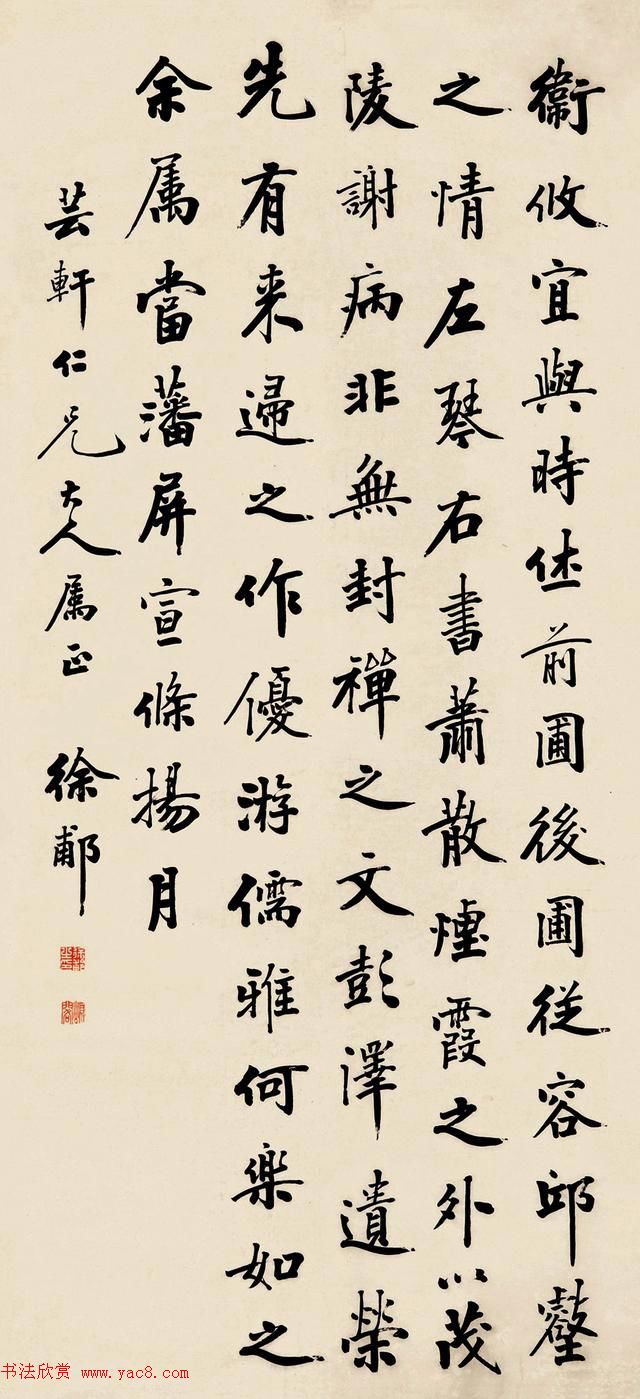 衞攸宜與時休前圃後圃從容邱壑
之情左琴右書蕭散煙霞之外以茂
陵謝病非無封禪之文彭澤遺榮
先有来歸之作優游儒雅何樂如之
余属當藩屏宣條揚月
芸軒仁兄大人属正 徐郙
书法欣赏 www.yac8.com